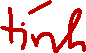 tính